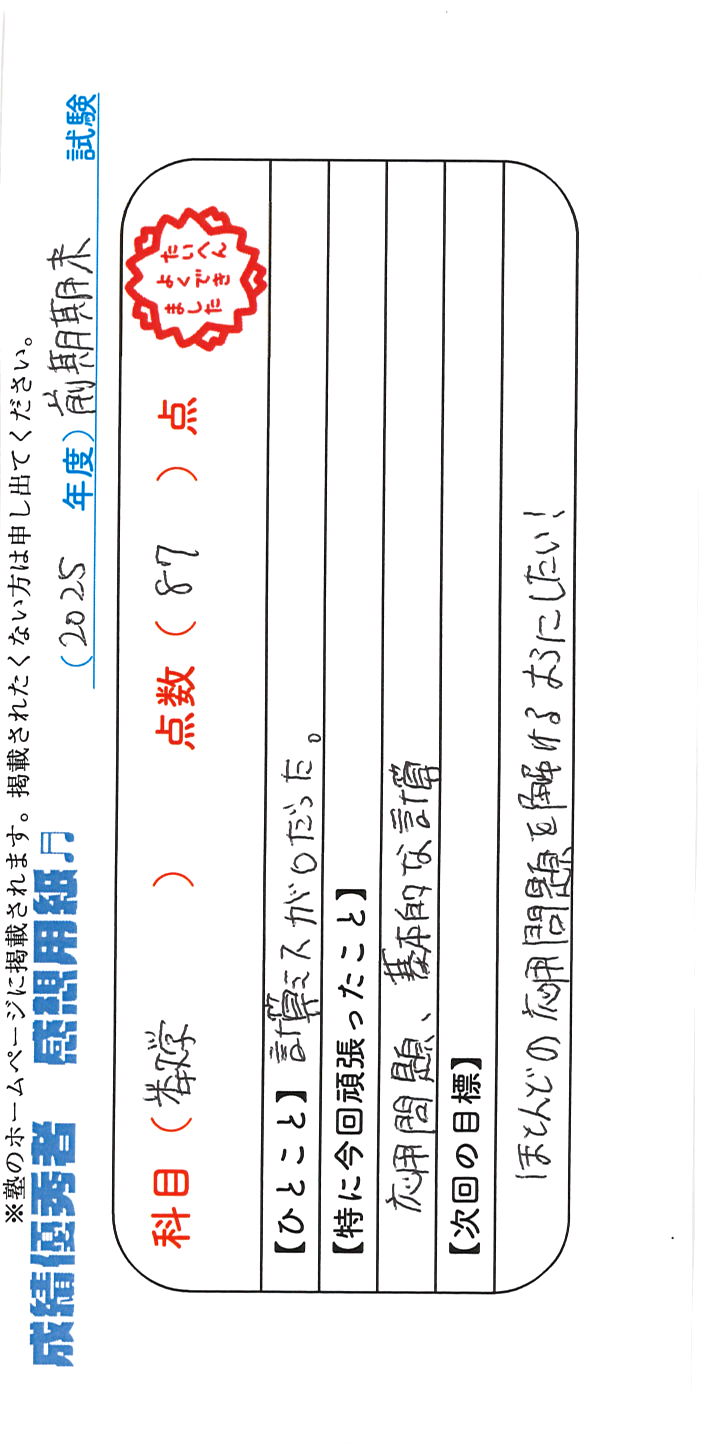 ※塾のホームページに掲載されます。掲載されたくない方は申し出てください。
成績優秀者 感想用紙♬ (2025 年度) 前期期末 試験
科目 (数学) 点数 (87) 点
たいへん
よくでき
ました
【ひとこと】計算ミスが0だった。
【特に今回頑張ったこと】
応用問題、基本的な計算
【次回の目標】
ほとんどの応用問題を解けるようにしたい!